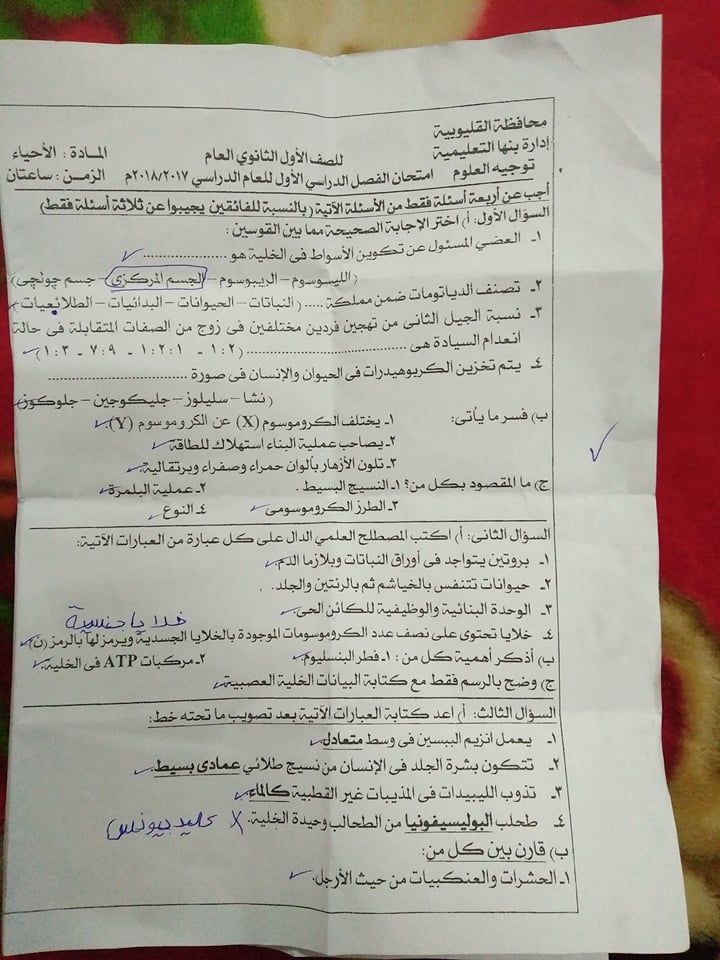 محافظة القليوبية
إدارة بنها التعليمية للصف الأول الثانوي العام المادة : الأحياء
توجيه العلوم امتحان الفصل الدراسي الأول للعام الدراسي ٢٠١٨/٢٠١٧م الزمن : ساعتان
أجب عن أربعة أسئلة فقط من الأسئلة الآتية (بالنسبة للفائقين يجيبوا عن ثلاثة أسئلة فقط)
السؤال الأول: أ) اختر الإجابة الصحيحة مما بين القوسين :
١ـ العضي المسئول عن تكوين الأسواط في الخلية هو ....................
(الليسوسوم – الريبوسوم – الجسم المركزي – جسم چولچي)
٢ـ تصنف الدياتومات ضمن مملكة ..... (النباتات – الحيوانات – البدائيات – الطلائعيات)
٣ـ نسبة الجيل الثانى من تهجين فردين مختلفين فى زوج من الصفات المتقابلة فى حالة
انعدام السيادة هى .............................. (١:٢ - ١:٢:١ - ٧:٩ - ١:٣)
٤ـ يتم تخزين الكربوهيدرات فى الحيوان والإنسان فى صورة ..............................
(نشا – سليلوز – جليكوجين – جلوكوز)
ب) فسر ما يأتى: ١ـ يختلف الكروموسوم (X) عن الكروموسوم (Y).
٢ـ يصاحب عملية البناء استهلاك للطاقة
٣ـ تلون الأزهار بألوان حمراء وصفراء وبرتقالية.
ج) ما المقصود بكل من؟ ١ـ النسيج البسيط . ٢ـ عملية البلمرة
٣ـ الطرز الكروموسومى ٤ـ النوع
السؤال الثانى: أ) اكتب المصطلح العلمي الدال على كل عبارة من العبارات الآتية:
١ـ بروتين يتواجد فى أوراق النباتات وبلازما الدم.
٢ـ حيوانات تتنفس بالخياشم ثم بالرئتين والجلد.
٣ـ الوحدة البنائية والوظيفية للكائن الحى. خلايا جنسية
٤ـ خلايا تحتوى على نصف عدد الكروموسومات الموجودة بالخلايا الجسدية ويرمز لها بالرمز (ن)
ب) أذكر أهمية كل من : ١ـ فطر البنسليوم ٢ـ مركبات ATP فى الخلية.
ج) وضح بالرسم فقط مع كتابة البيانات الخلية العصبية
السؤال الثالث: أ) اعد كتابة العبارات الآتية بعد تصويب ما تحته خط:
١ـ يعمل انزيم الببسين فى وسط متعادل.
٢ـ تتكون بشرة الجلد فى الإنسان من نسيج طلائي عمادى بسيط.
٣ـ تذوب الليبيدات فى المذيبات غير القطبية كالماء.
٤ـ طحلب البوليسيفونيا من الطحالب وحيدة الخلية. X كليدوموناس
ب) قارن بين كل من:
١ـ الحشرات والعنكبيات من حيث الأرجل.